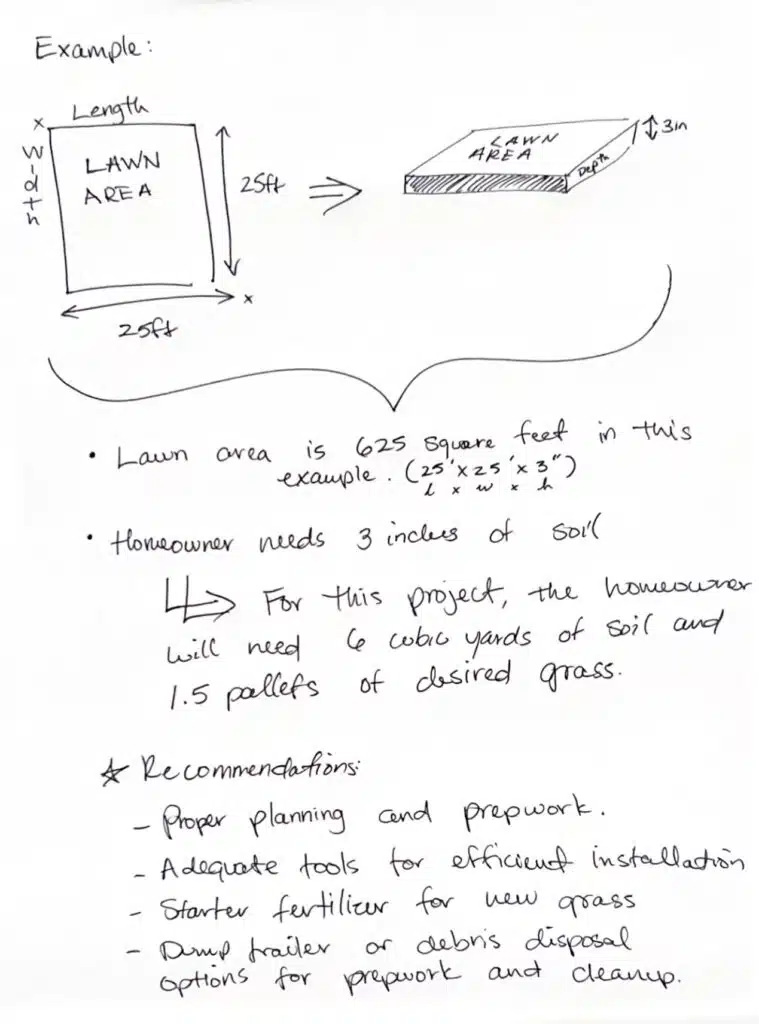 Example:
x Length
Width
LAWN
AREA
25ft
x
25ft
LAWN
AREA
Depth
3in
• Lawn area is 625 square feet in this
example. (25'x25'x3")
l x w x h
• Homeowner needs 3 inches of soil
For this project, the homeowner
will need 6 cubic yards of soil and
1.5 pallets of desired grass.
☆ Recommendations:
- Proper planning and prepwork.
- Adequate tools for efficient installation
- Starter fertilizer for new grass
- Dump trailer or debris disposal
options for prepwork and cleanup.